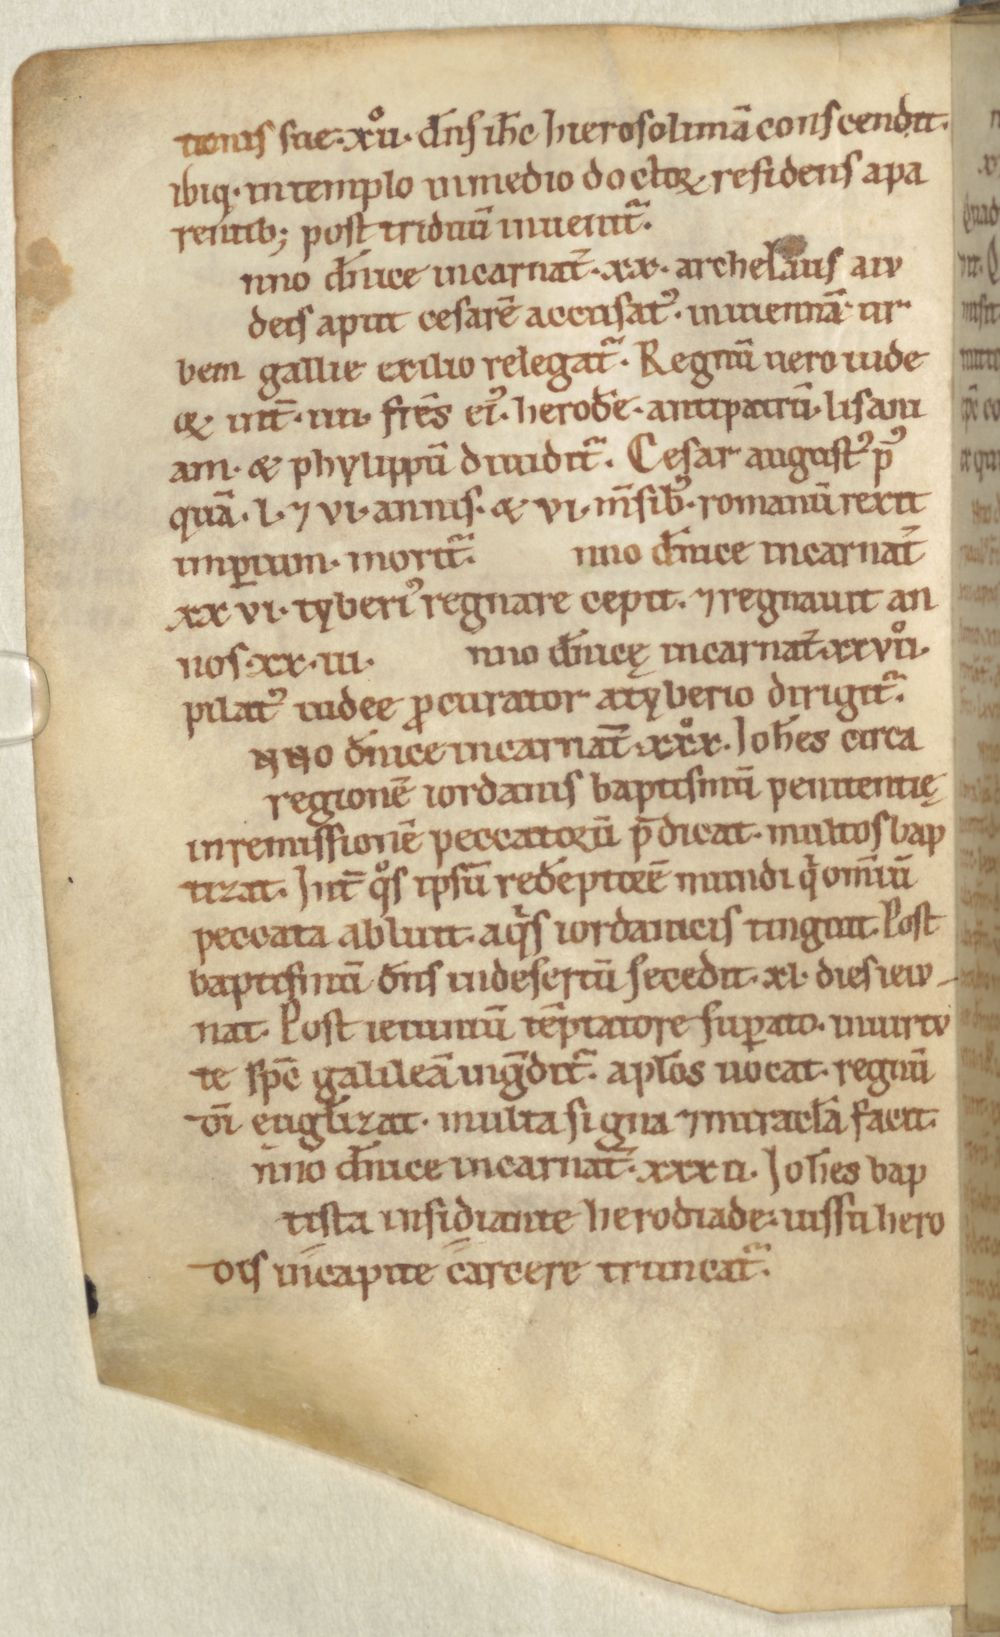 tionis sue·xºii· dn̄s ih̄c hierosolimā conscendit·
ibiq;· in templo in medio doctoꝝ residens a pa
rentib; post triduū inuenit᷑.
nno dn̄ice incarnat̄·xx· archelaus a iu
deis aput cesarē accusatꝰ· in uiennā ur
bem gallie exilio relegat᷑. Regnū uero iude
& int̄· iiii· fr̄es eiꝰ· herođe· antipatrū· lisani
am· & phylippū diuidit᷑. Cesar augustꝰ p̄ꝰ
quā· l· ⁊ vi· annis· & vi· m̄sibꝰ· romanū rexit
imꝑium· morit᷑. nno dn̄ice incarnat̄
xx vi· tyberiꝰ regnare cepit. ⁊ regnauit an
nos·xx·iii· nno dn̄icę incarnat̄·xxvºii·
pilatꝰ iudee ꝓcurator a tyberio dirigit᷑.
nno dn̄ice incarnat̄·xxºx· Joh̄es circa
regionē iordanis baptismū penitentię
in remissionē peccatorū p̄dicat· multos bap
tizat. Int̄ qºs ipsū redēptorē mundi qⁱ omīū
peccata abluit· aqⁱs iordanicis tinguit. Post
baptismū dn̄s in desertū secedit· xl· dies ieiu-
nat. Post ieiuniū tēptatore suꝑato· in uirtu
te sp̄c galileā ingᵃdit᷑. apl̄os uocat· regnū
di̅ euḡlizat· multa signa ⁊ miracl̄a facit.
nno dn̄ice incarnat̄·xxxii· Joh̄es bap
tista insidiante herodiade: iussu hero
dis in̄ capite cārcere truncat᷑.